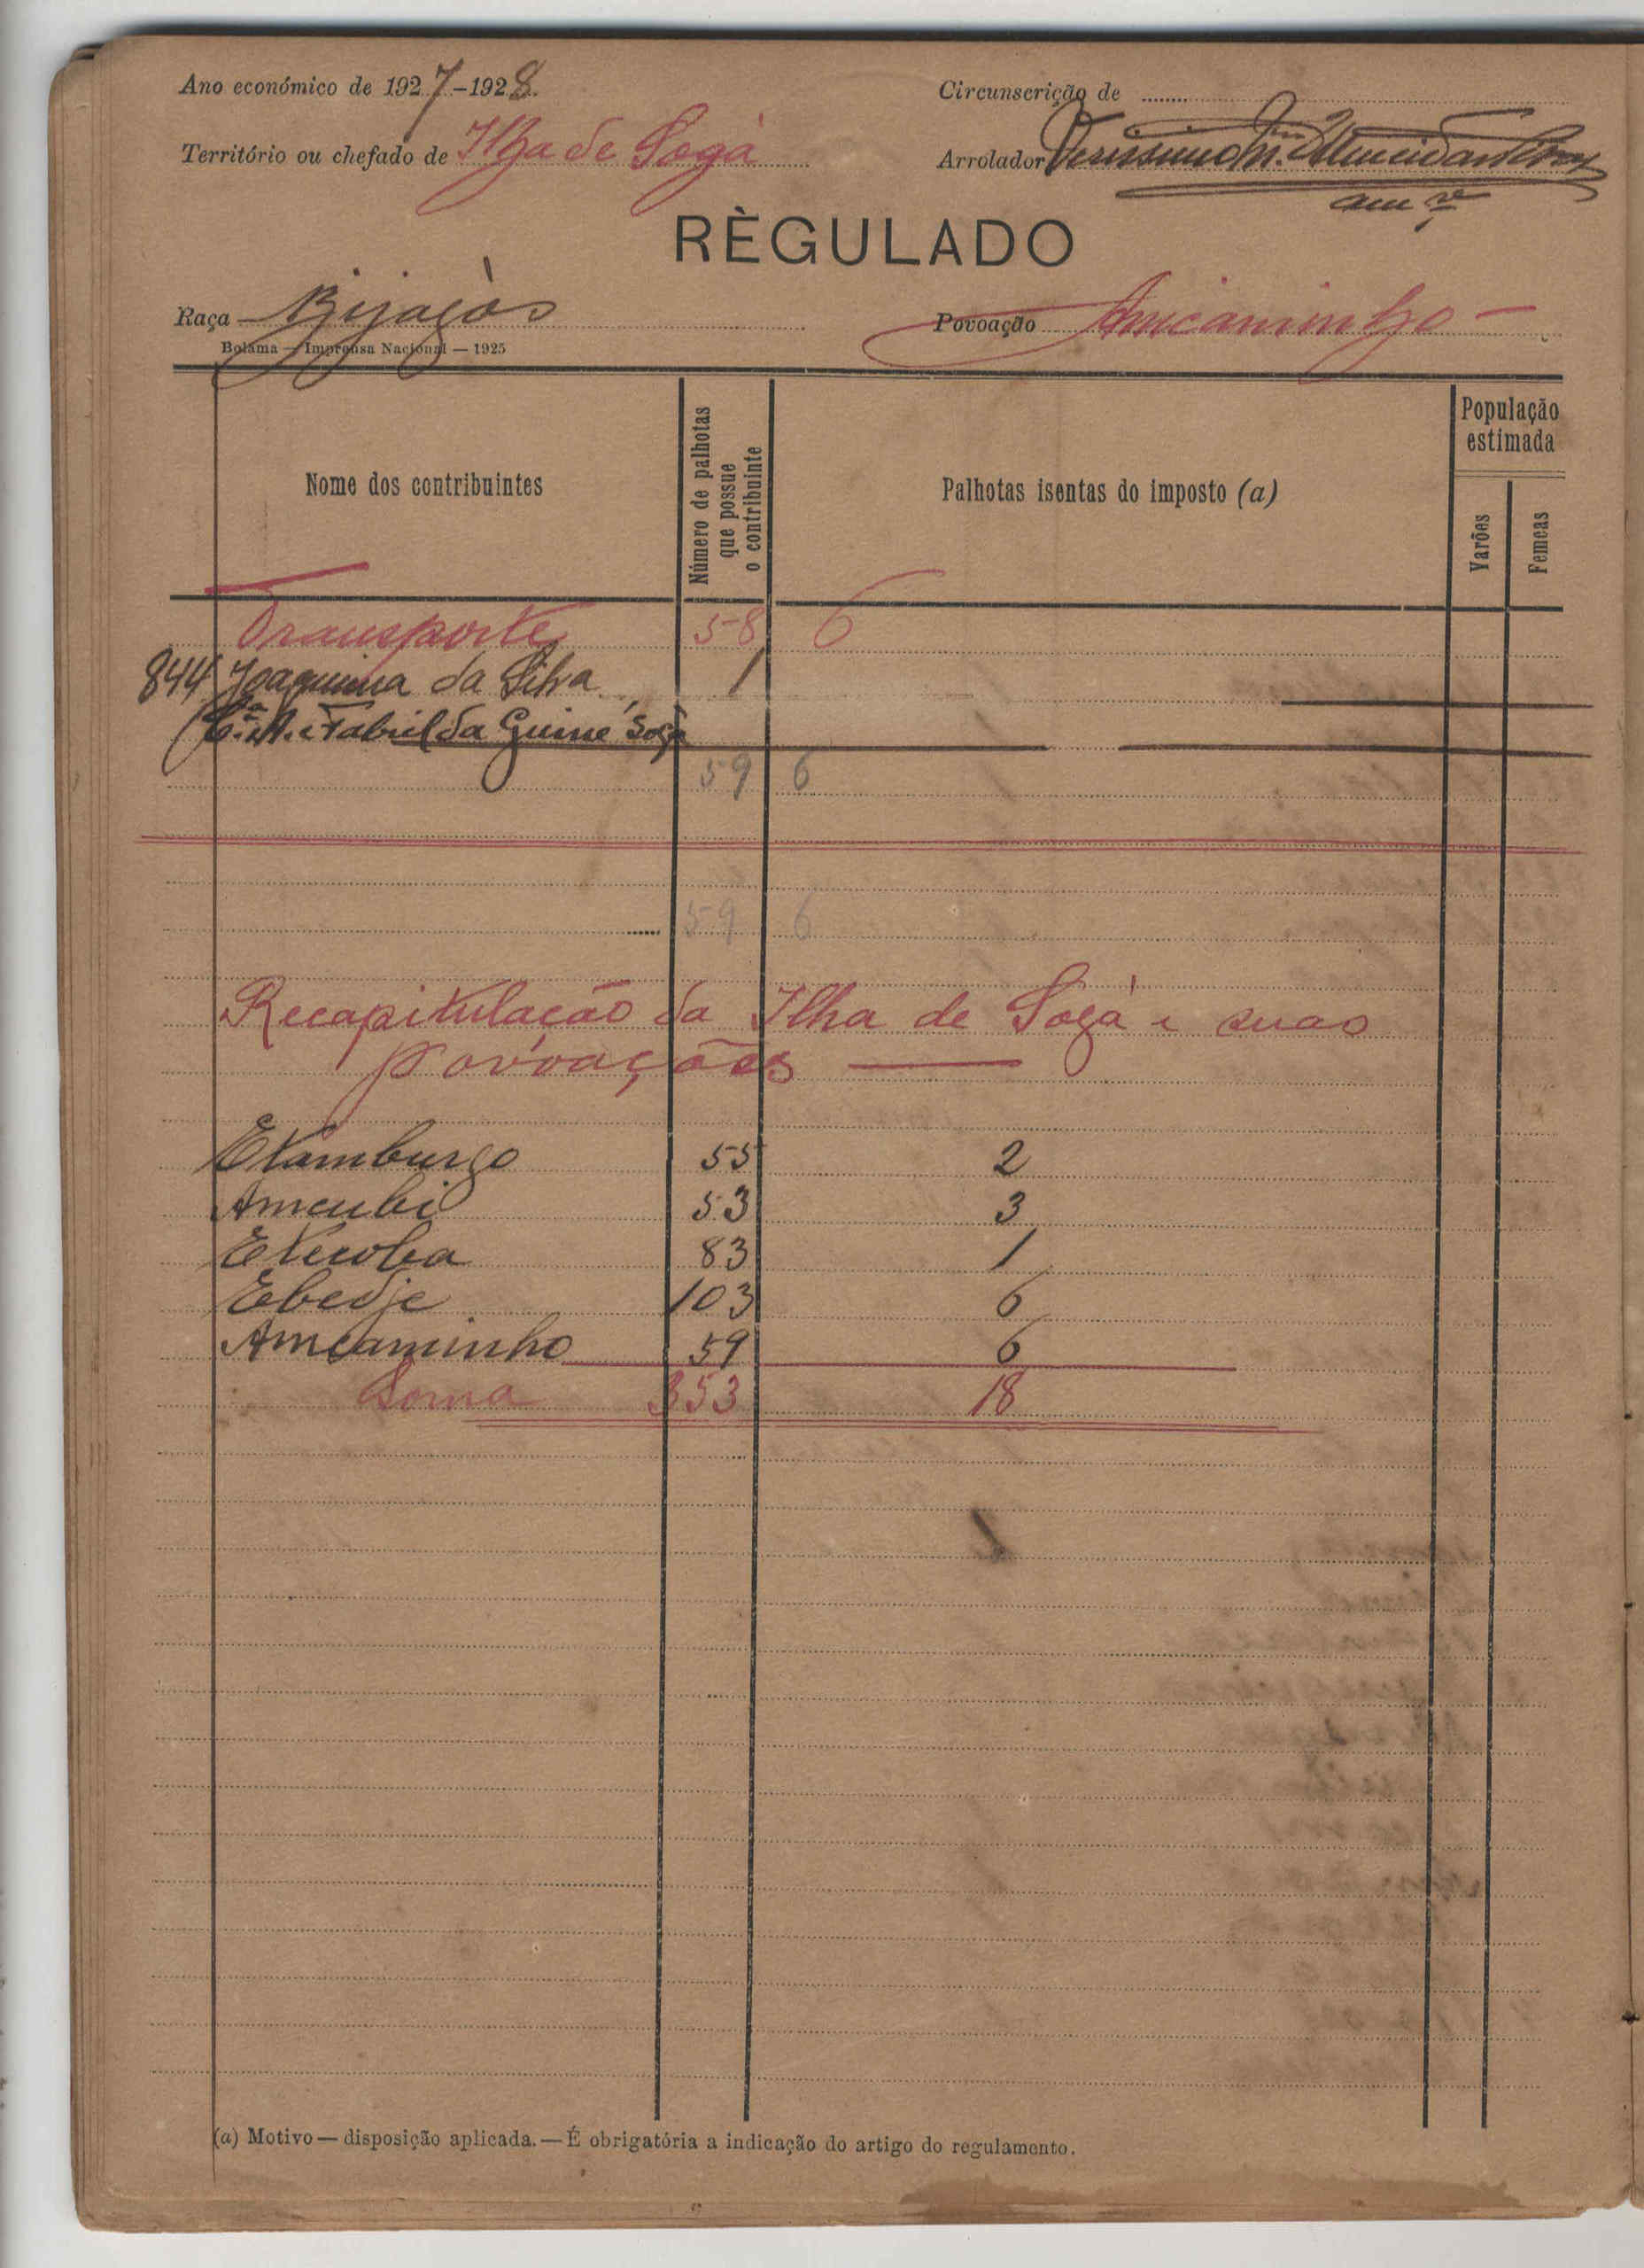 Ano económico de 1927-1928.
Circunscrição de
Território ou chefado de Ilha de Sogá
Arrolador Verissimo
RÈGULADO
Raça Bijagós
Povoação Amcaminho
Bolama — Imprensa Nacional — 1925
Nome dos contribuintes
Número de palhotas que possue o contribuinte
Palhotas isentas do imposto (a)
População estimada
Varões
Femeas
Transporte 58 6
844 Joaquina da Silva 1
Cª. A. e Fabril da Guiné Sogá
59 6
59 6
Recapitulação da Ilha de Sogá e suas
povoações
Etamburgo 55 2
Amcubi 53 3
Eticoba 83 1
Ebedje 103 6
Amcaminho 59 6
Soma 353 18
(a) Motivo — disposição aplicada. — É obrigatória a indicação do artigo do regulamento.